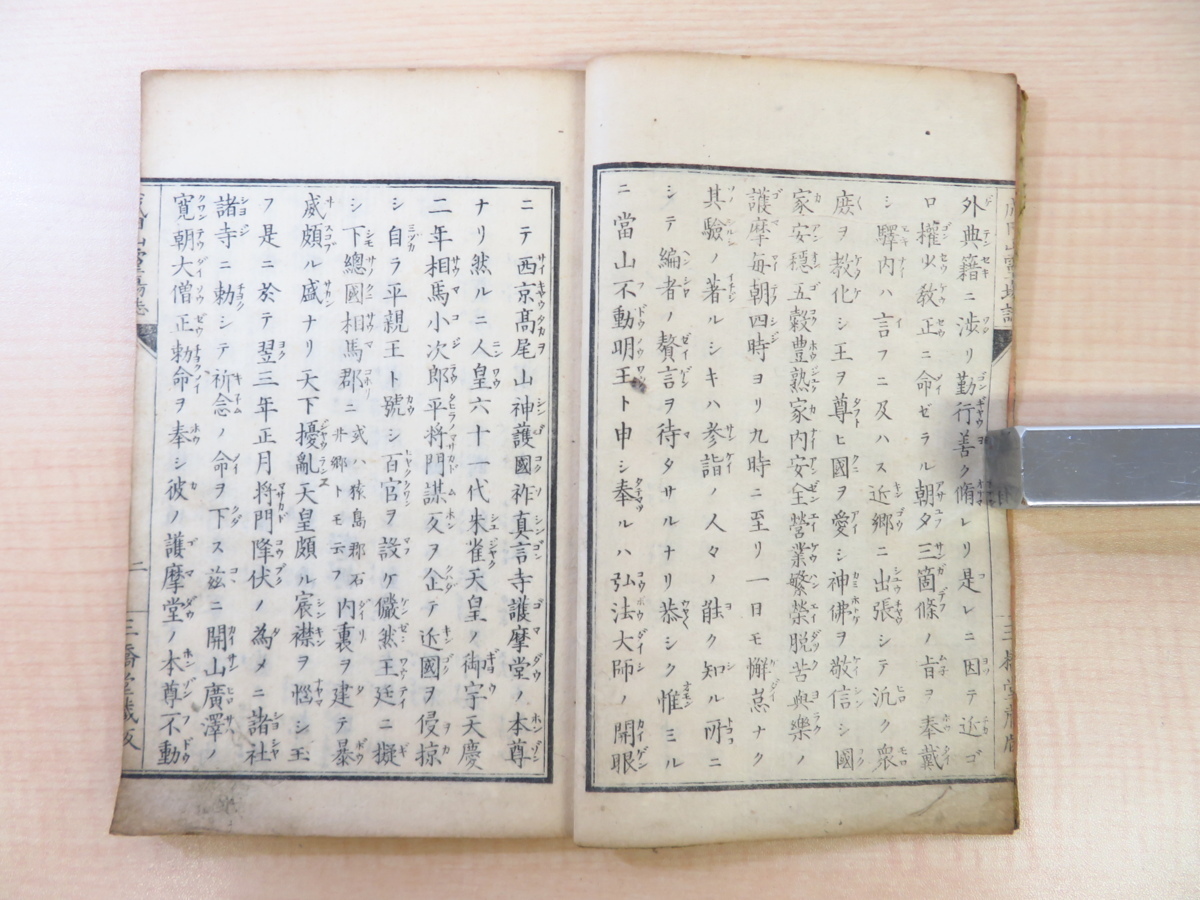 外典籍ニ渉リ勤行善ク脩レリ是レニ因テ近ゴ
ロ權少教正ニ命ゼラル朝夕三箇條ノ旨ヲ奉戴
シ驛内ハ言フニ及ハス近郷ニ出張シテ汎ク衆
庶ヲ教化シ王ヲ尊ヒ國ヲ愛シ神佛ヲ敬信シ國
家安穩五穀豊熟家内安全營業繁榮脱苦與樂ノ
護摩毎朝四時ヨリ九時ニ至リ一日モ懈怠ナク
其驗ノ著ルシキハ参詣ノ人々ノ能ク知ル所ニ
シテ編者ノ贅言ヲ待タサルナリ恭シク惟ミル
ニ當山不動明王ト申シ奉ルハ弘法大師ノ開眼
ニテ西京髙尾山神護國祚真言寺護摩堂ノ本尊
ナリ然ルニ人皇六十一代朱雀天皇ノ御宇天慶
二年相馬小次郎平将門謀反ヲ企テ近國ヲ侵掠
シ自ラ平親王ト號シ百官ヲ設ケ儼然王廷ニ擬
シ下總國相馬郡ニ或ハ猿島郡石井郷トモ云フ内裏ヲ建テ暴
威頗ル盛ナリ天下擾亂天皇頗ル宸襟ヲ惱シ玉
フ是ニ於テ翌三年正月将門降伏ノ為メニ諸社
諸寺ニ勅シテ祈念ノ命ヲ下ス茲ニ開山廣澤ノ
寛朝大僧正勅命ヲ奉シ彼ノ護摩堂ノ本尊不動
二
三橋堂藏版